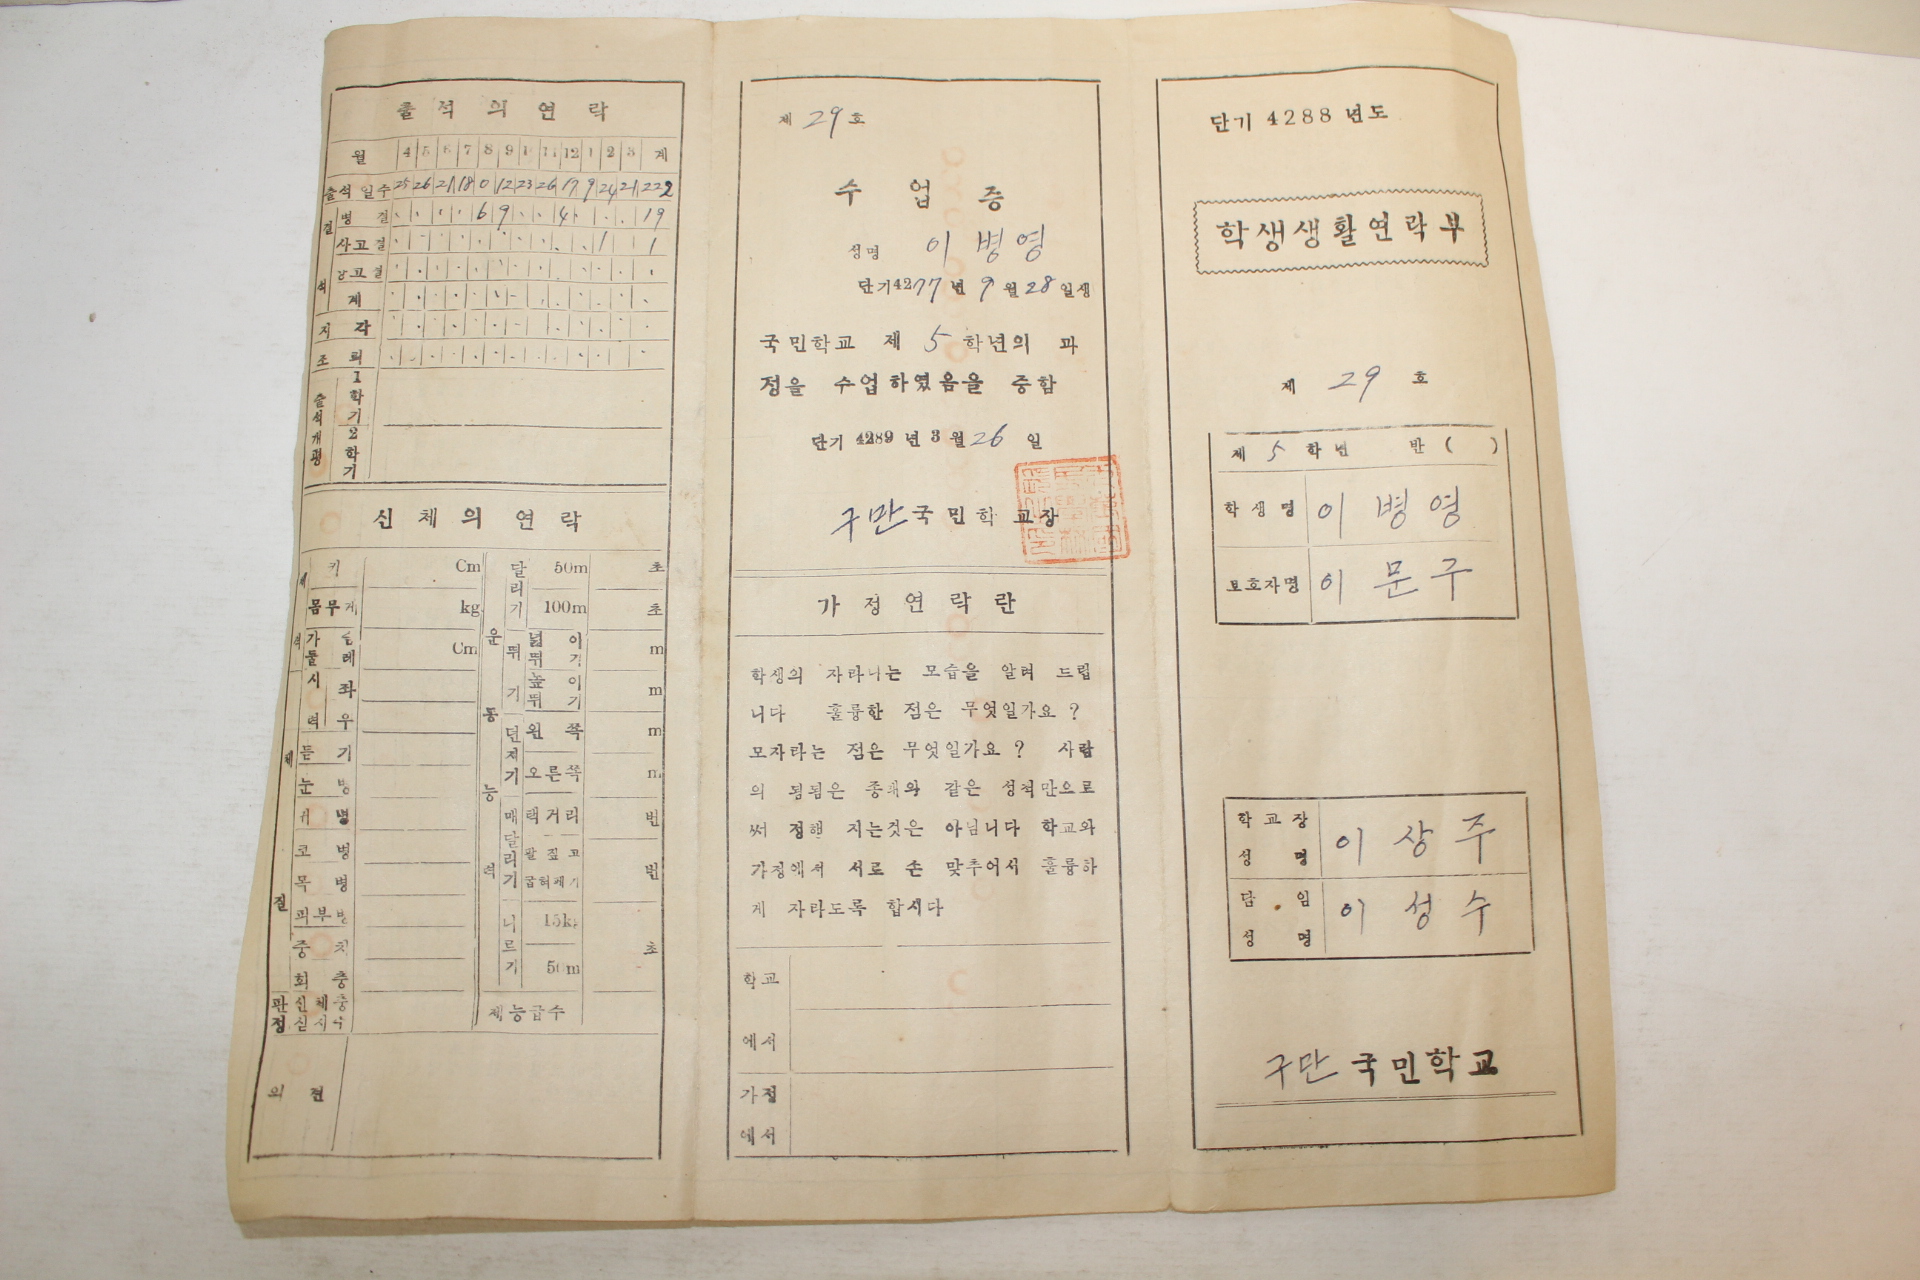 출석의연락
월 4 5 6 7 8 9 10 11 12 1 2 3 계
출석일수 25 26 21 18 0 12 23 26 17 9 24 21 222
결석
병결 6 9 4 19
사고결 1 1
계
지각
조퇴
출석개평
1학기
2학기
신체의연락
키 Cm
몸무게 kg
가슴둘레 Cm
시력 좌
우
듣기
눈병
귀병
코병
목병
피부병
충치
회충
의견
운동능력
달리기 50m 초
100m 초
뛰기 넓이뛰기 m
높이뛰기 m
던지기 왼쪽 m
오른쪽 m
매달리기 턱거리 번
팔짚고 번
나르기 15kg
50m 초
체능급수
제 29 호
수업증
성명 이병영
단기4277년 9월 28일생
국민학교 제 5 학년의 과
정을 수업하였음을 증함
단기 4289년 3월 26일
구만국민학교장
가정연락란
학생의 자라나는 모습을 알려 드립
니다 훌륭한 점은 무엇일가요?
모자라는 점은 무엇일가요? 사람
의 됨됨은 종래와 같은 성적만으로
써 정해 지는것은 아닙니다 학교와
가정에서 서로 손 맞추어서 훌륭하
게 자라도록 합시다
학교
에서
가정
에서
단기 4288년도
학생생활연락부
제 29 호
제 5 학년 반( )
학생명 이병영
보호자명 이문구
학교장
성명 이상주
담임
성명 이성수
구만국민학교